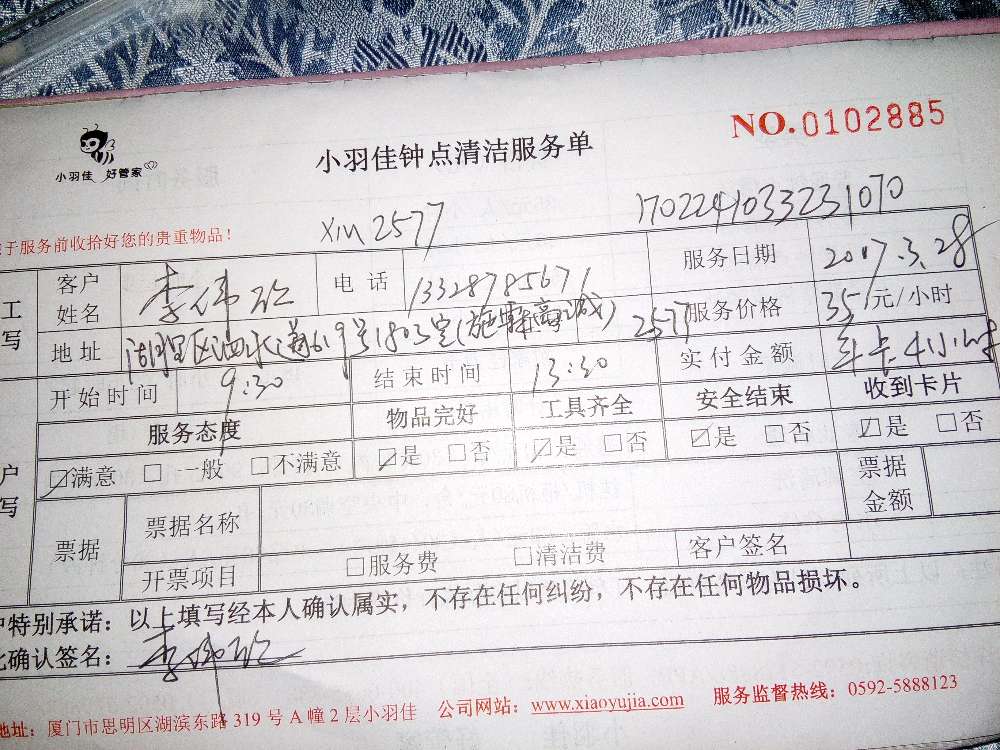 NO.0102885
小羽佳 好管家
小羽佳钟点清洁服务单
于服务前收拾好您的贵重物品！
XIU2577 1702241033231070
工
写
客户姓名 李伟 电话 13328785671 服务日期 2017.3.28
地址 湖里区 619号1803室 2577 服务价格 35元/小时
开始时间 9:30 结束时间 13:30 实付金额 年卡4小时
服务态度 物品完好 工具齐全 安全结束 收到卡片
户
写
☑满意 □一般 □不满意 ☑是 □否 ☑是 □否 ☑是 □否 ☑是 □否
票据 票据名称 票据金额
开票项目 □服务费 □清洁费 客户签名
户特别承诺：以上填写经本人确认属实，不存在任何纠纷，不存在任何物品损坏。
此确认签名：李伟
地址：厦门市思明区湖滨东路319号A幢2层小羽佳 公司网站：www.xiaoyujia.com 服务监督热线：0592-5888123